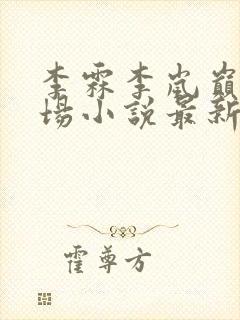 李霖李岚巅
場小說最新
霍尊方